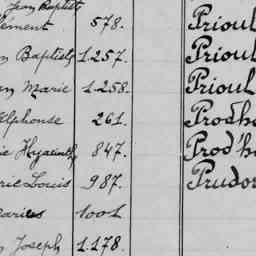 Jean Baptiste
lément 578. Prioul
n Baptiste 1.257. Prioul
n Marie 1.258. Prioul
lphonse 261. Prodho
ie Hyacinthe 847. Prod'ho
rie Louis 987. Prudor
1001
Joseph 1.178.